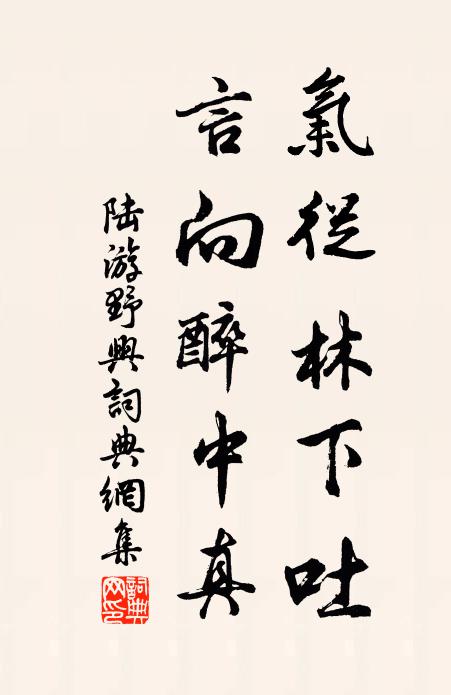 氣從林下吐
言向醉中真
陆游野興詞典網集
詞典网印